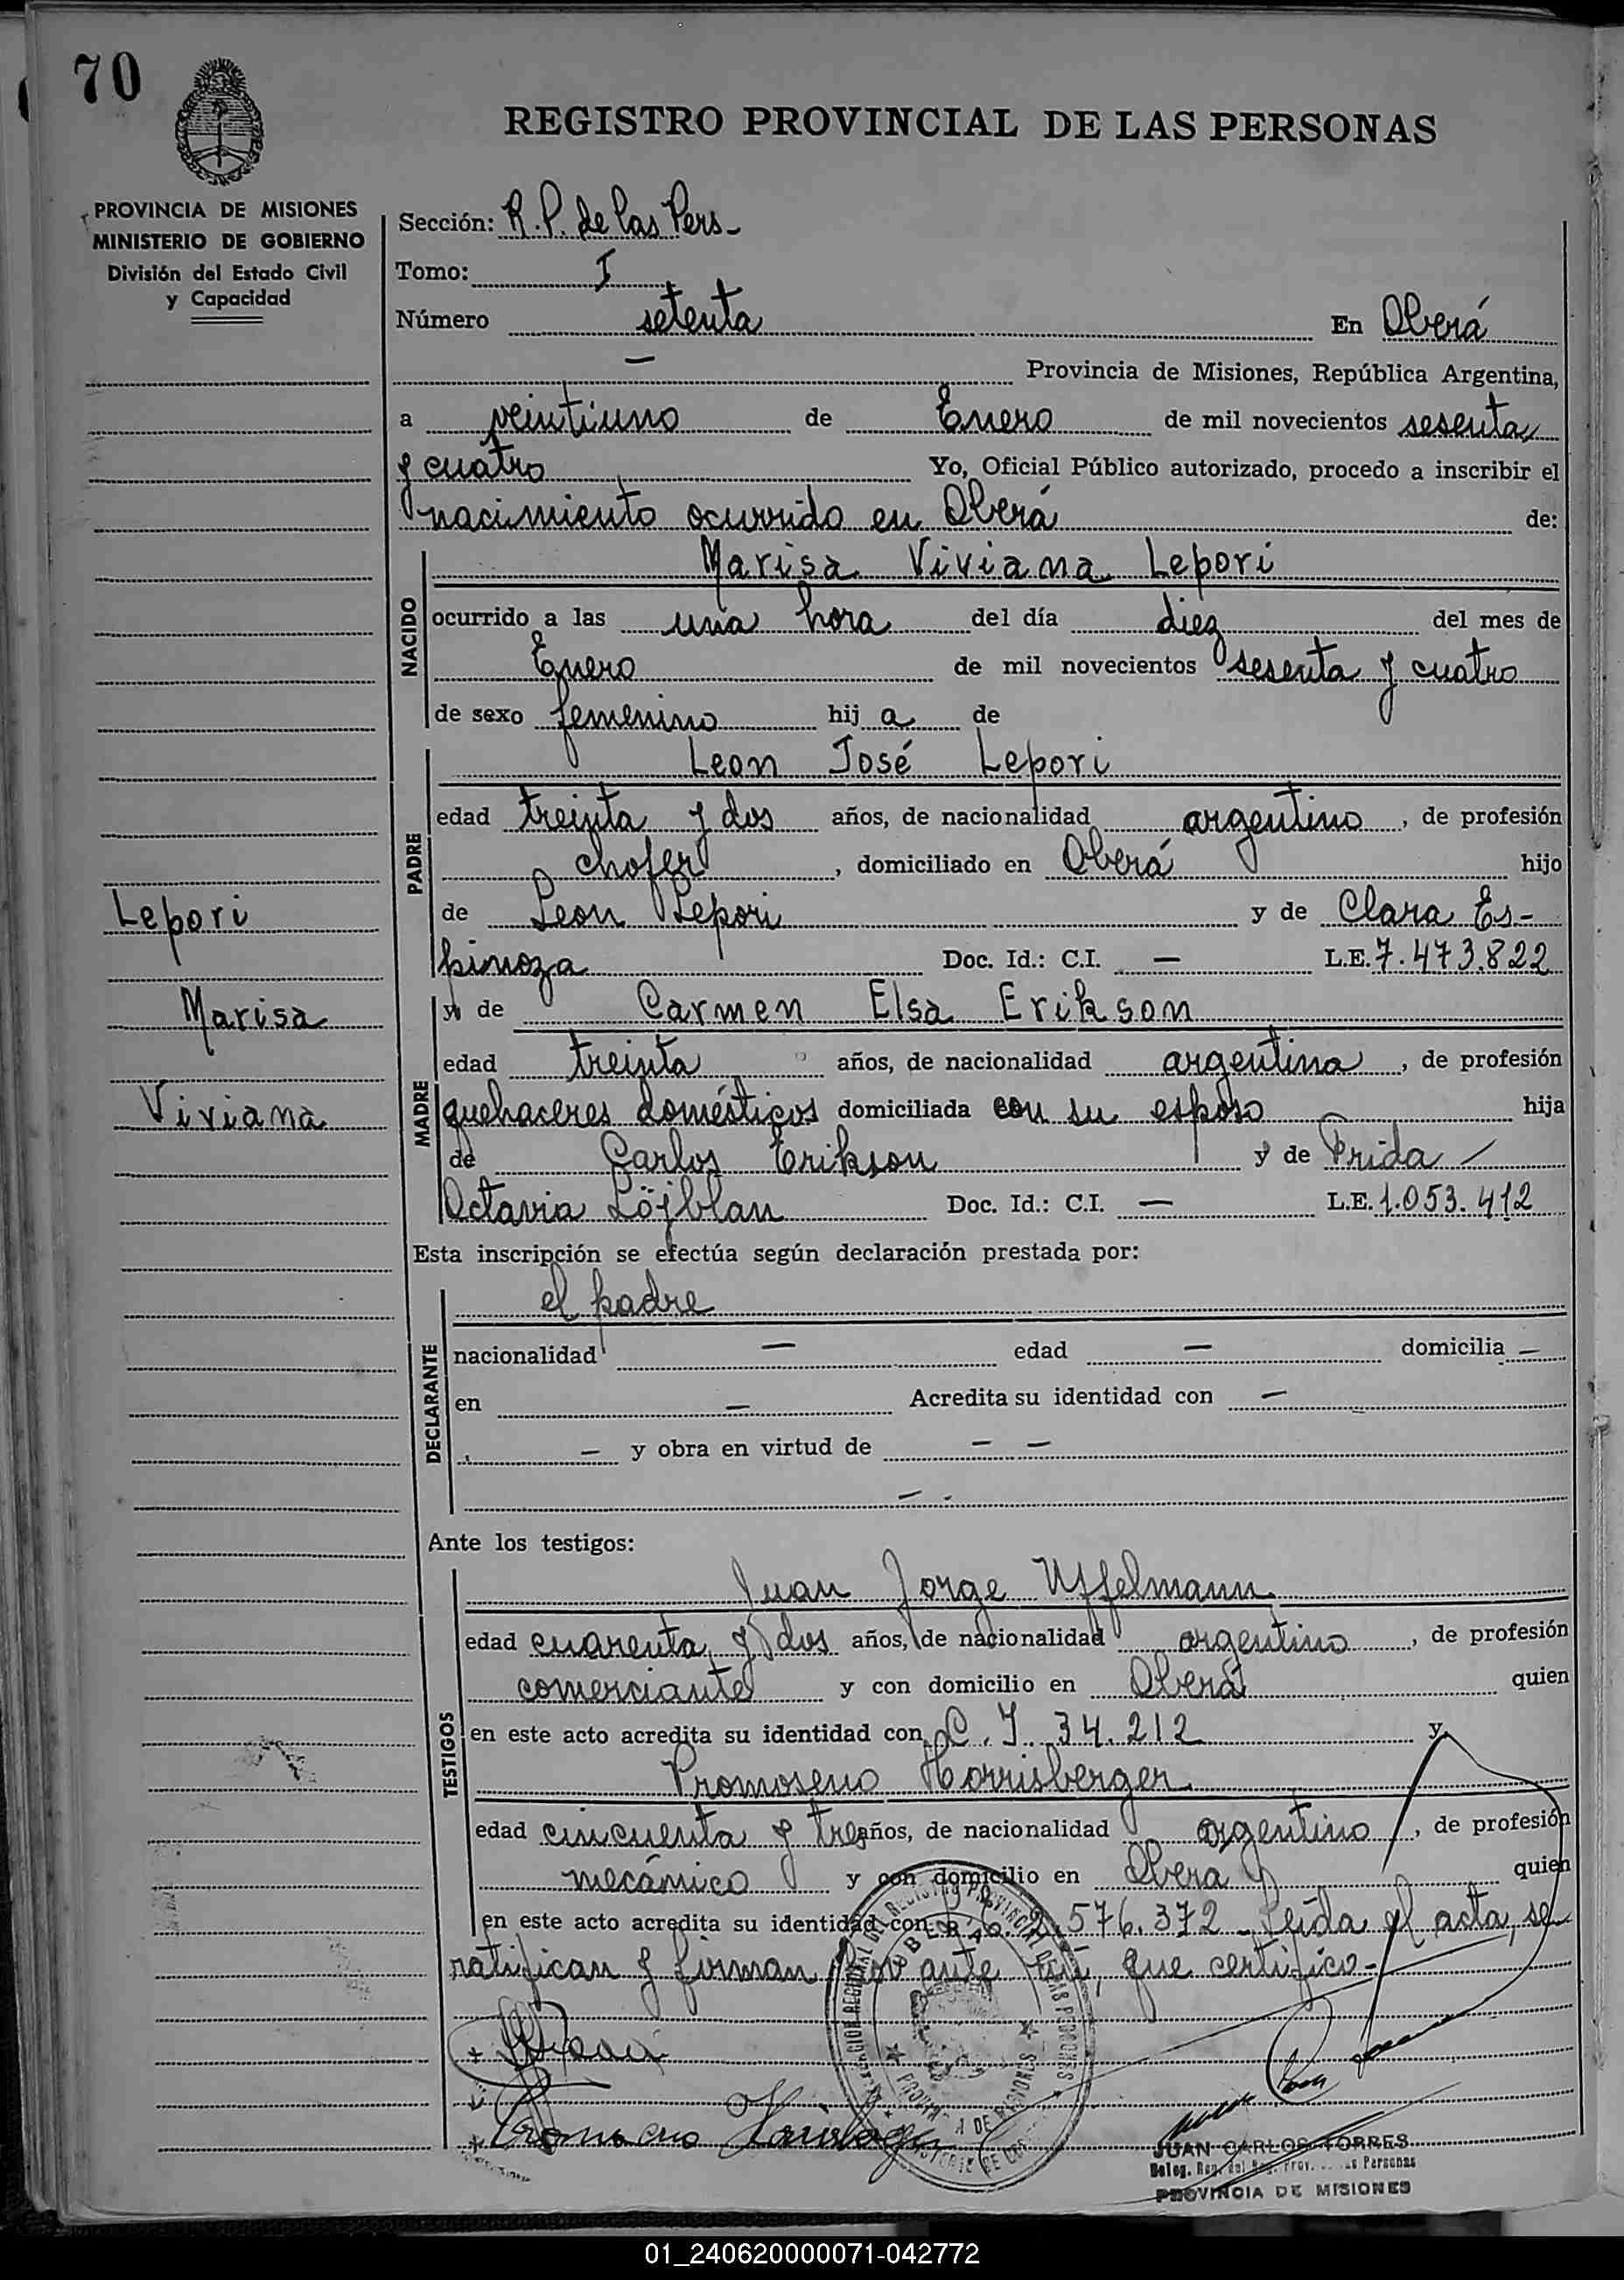 70
REGISTRO PROVINCIAL DE LAS PERSONAS
PROVINCIA DE MISIONES
MINISTERIO DE GOBIERNO
División del Estado Civil
y Capacidad
Sección: R.P. de las Pers-
Tomo: I
Número setenta En Oberá
— Provincia de Misiones, República Argentina,
a veintiuno de Enero de mil novecientos sesenta
y cuatro Yo, Oficial Público autorizado, procedo a inscribir el
nacimiento ocurrido en Oberá de:
NACIDO
Marisa Viviana Lepori
ocurrido a las una hora del día diez del mes de
Enero de mil novecientos sesenta y cuatro
de sexo femenino hij a de
PADRE
Leon José Lepori
edad treinta y dos años, de nacionalidad argentino, de profesión
chofer, domiciliado en Oberá hijo
de Leon Lepori y de Clara Es-
pinoza Doc. Id.: C.I. — L.E. 7.473.822
Lepori
Marisa
Viviana
MADRE
y de Carmen Elsa Erikson
edad treinta años, de nacionalidad argentina, de profesión
quehaceres domésticos domiciliada con su esposo hija
de Carlos Erikson y de Frida —
Octavia Löjblan Doc. Id.: C.I. — L.E. 1.053.412
Esta inscripción se efectúa según declaración prestada por:
DECLARANTE
el padre
nacionalidad — edad — domicilia —
en — Acredita su identidad con —
— y obra en virtud de — —
— .
Ante los testigos:
TESTIGOS
Juan Jorge Uffelmann
edad cuarenta y dos años, de nacionalidad argentino, de profesión
comerciante y con domicilio en Oberá quien
en este acto acredita su identidad con C.I. 34.212 y
Promoseno Horrisberger
edad cincuenta y tres años, de nacionalidad argentino, de profesión
mecánico y con domicilio en Oberá quien
en este acto acredita su identidad con 576.372 - Leída el acta, se
ratifican y firman por ante mí, que certifico-
OBERA
PROVINCIA DE MISIONES
JUAN CARLOS TORRES
Deleg. Reg. del Reg. Prov. de las Personas
PROVINCIA DE MISIONES
01_240620000071-042772